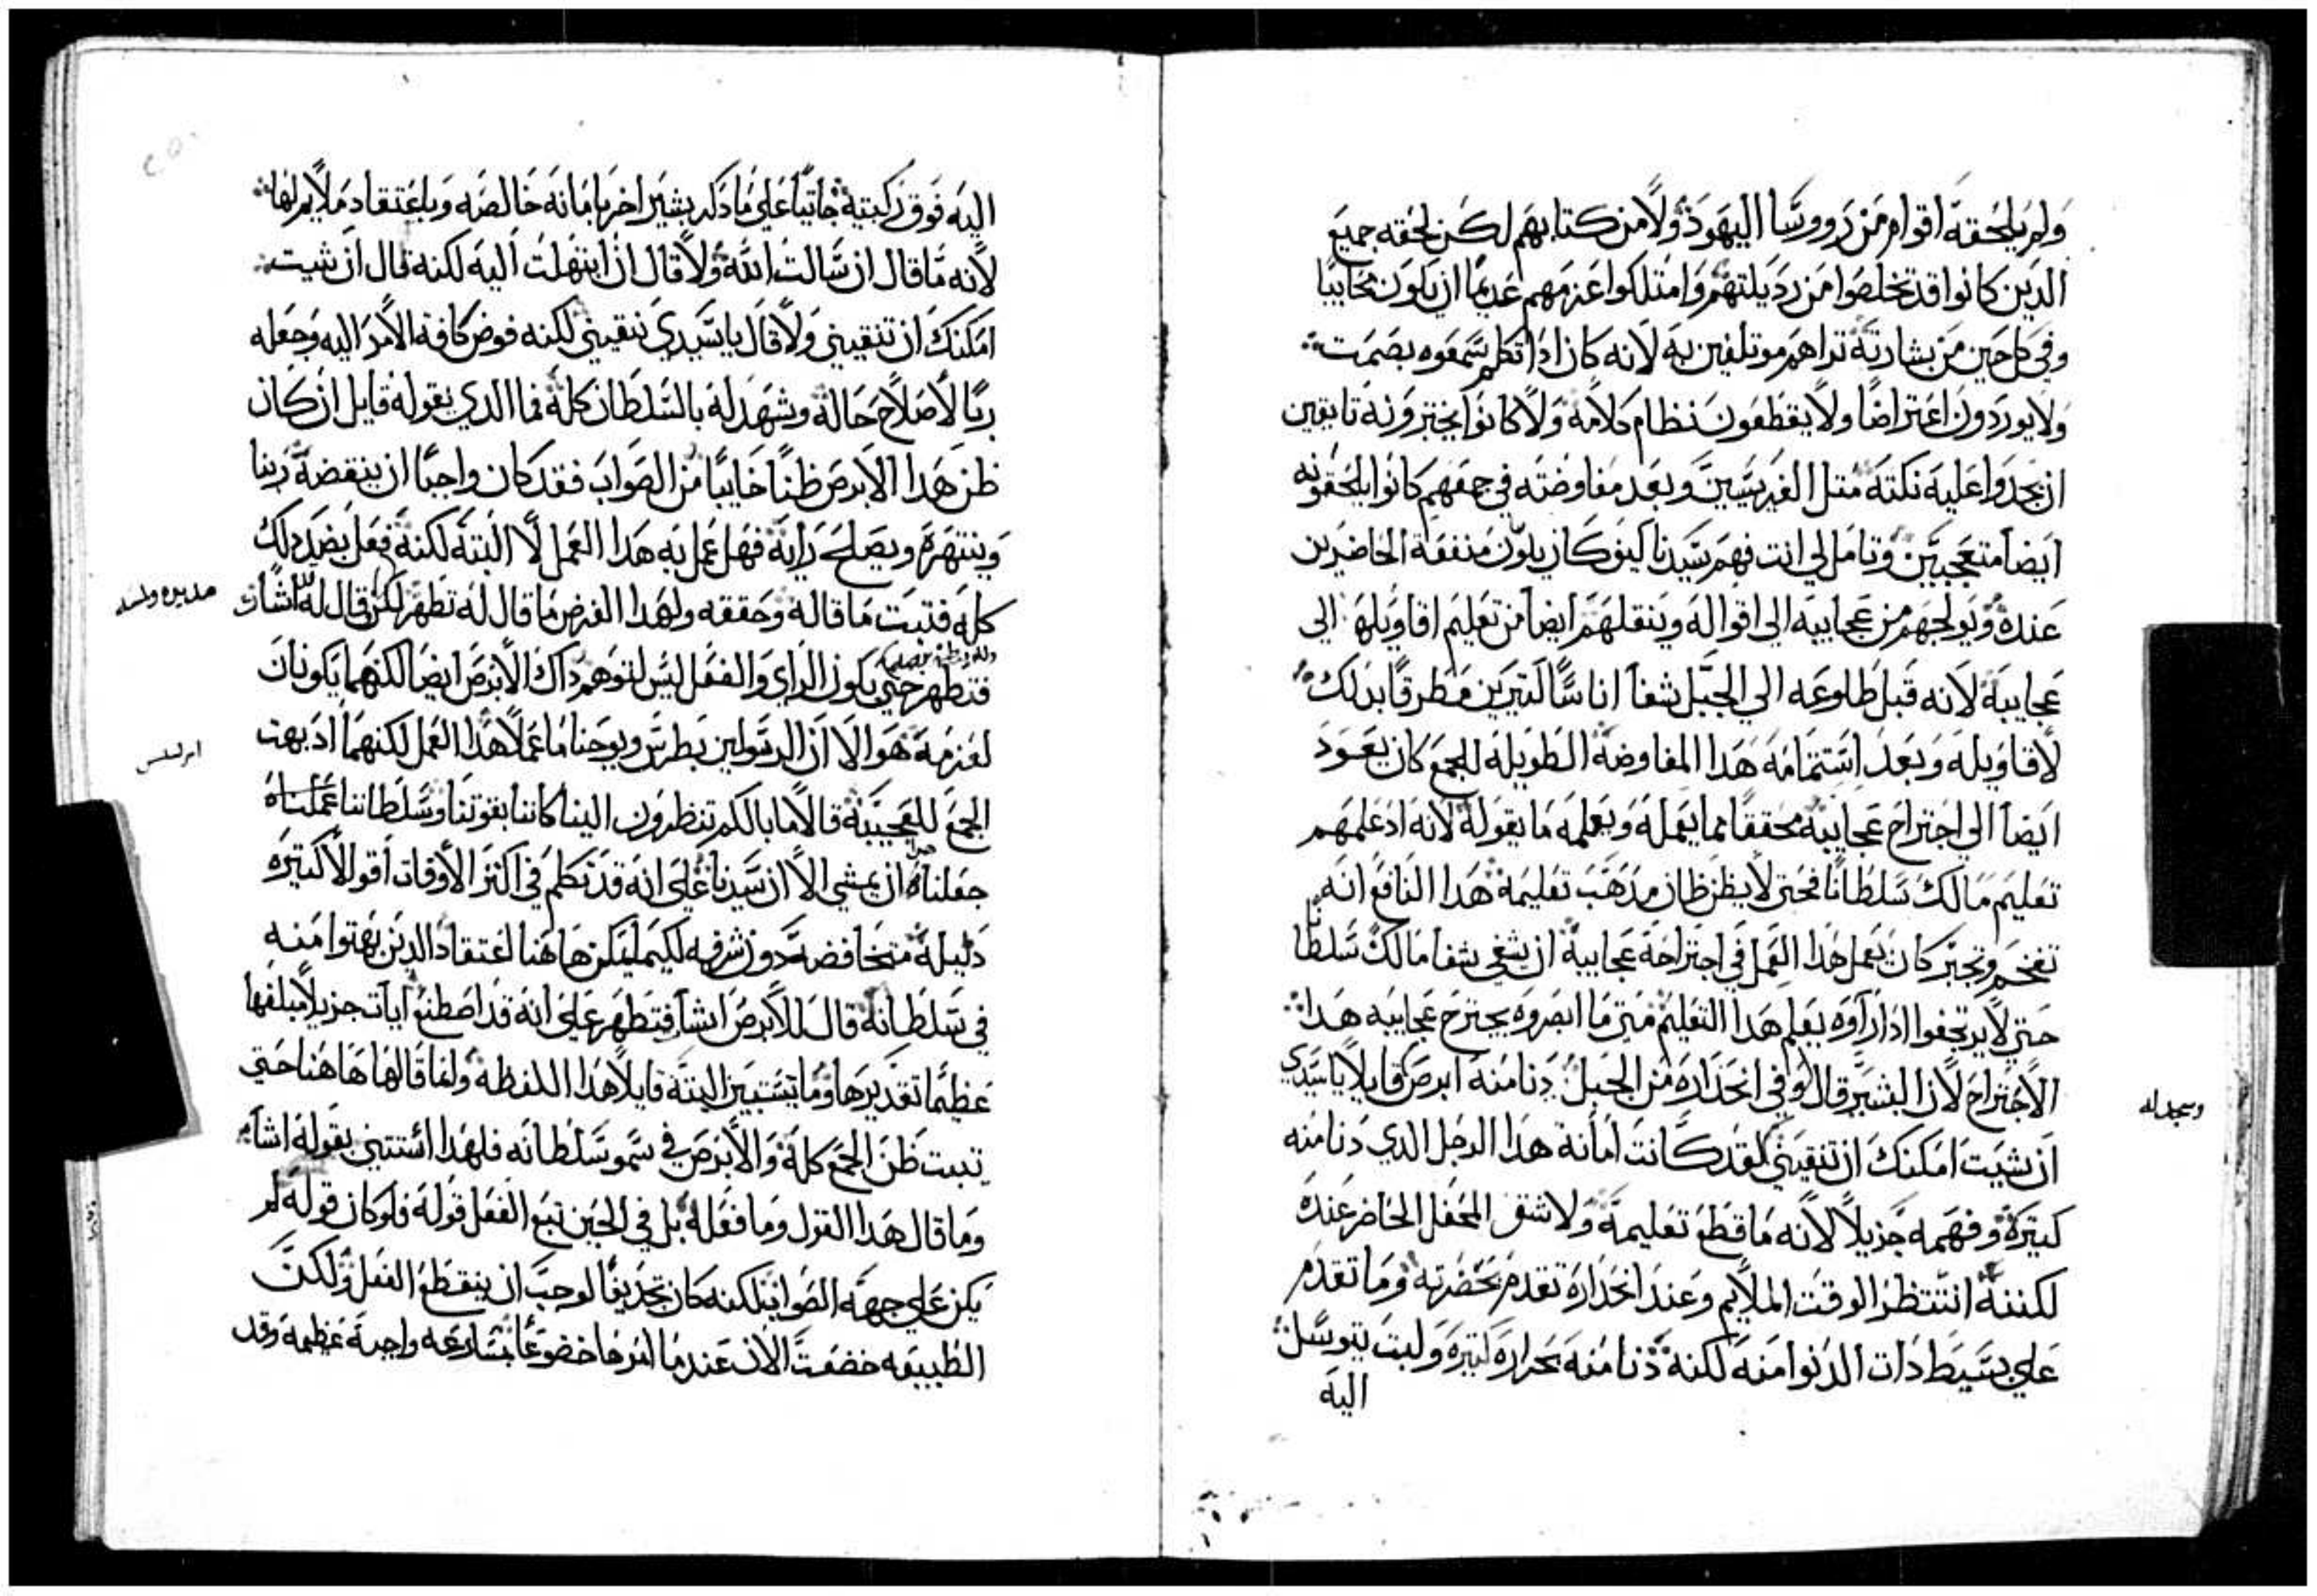 ولم يلحقه اقوام من رووسا اليهود ولا من كتابهم لكن لحقه جميع
الدين كانوا قد تخلصوا من رديلتهم وامتلكوا عزمهم عديما ان يكون محابيا
وفي كل حين من بشارته تراهم موتلفين به لانه كان ادا تكلم سمعوه بصمت
ولا يوردون اعتراضا ولا يقطعون نظام كلامه ولا كانوا يختبرونه تايقين
ان يجدوا عليه نكته متل الفريسيين وبعد مفاوضته في جمعهم كانوا يلحقونه
ايضا متعجبين وتامل لي انت فهم سيدنا كيف كان يلون منفعة الحاضرين
عنده ويولجهم من عجايبه الى اقواله وينقلهم ايضا من تعليم اقاويله الى
عجايبه لانه قبل طلوعه الي الجبل شفا اناسا كتيرين مطرقا بدلك
لاقاويله وبعد استتمامه هدا المفاوضة الطويله للجمع كان يعود
ايضا الي اجتراح عجايبه محققا بما يعمله ويعلمه ما يقوله لانه اد علمهم
تعليم مالك سلطانا فحتى لا يظن ظان مدهب تعليمه هدا النافع انه
تفخم وتجبر كان يعمل هدا العمل في اجتراحه عجايبه ان يشفي شفا مالك سلطانا
حتي لا يرتجفوا ادا راوه يعلم هدا التعليم متى ما ابصروه يجترح عجايبه هدا
الاجتراح لان البشير قال وفي انحداره من الجبل دنا منه ابرص قايلا يا سيدي
وسجد له
ان شيت امكنك ان تنقيني لقد كانت امانة هدا الرجل الدي دنا منه
كتيرة وفهمه جزيلا لانه ما قطع تعليمه ولا شق المحفل الحاضر عنده
لكننه انتظر الوقت الملايم وعند انحداره تقدم بحضرته وما تقدم
علي بسيط دات الدنوا منه لكنه دنا منه بحراره كتيرة ولبت يتوسل
اليه
اليه فوق ركبتيه جاتيا على ما دكر بشير اخر بامانه خالصه وباعتقاد ملايم لها
لانه ما قال ان سالت الله ولا قال ان ابتهلت اليه لكنه قال ان شيت
امكنك ان تنقيني ولا قال يا سيدي نقيني لكنه فوض كافة الامر اليه وجعله
ربا لاصلاح حاله وشهد له بالسلطان كله فما الدي يقوله قايل ان كان
ظن هدا الابرص ظنا خايبا من الصواب فقد كان واجبا ان ينقضه ربنا
وينتهره ويصلح رايه فهل عمل به هدا العمل لا البته لكنه فعل بضد دلك
كله فتبت ما قاله وحققه ولهدا الغرض ما قال له تطهر لكن قال له اشا ان
فتطهر حتي يكون الراي والفعل ليس لتوهم داك الابرص ايضا لكنهما يكونان
لعزمه هو الا ان الرسولين بطرس ويوحنا ما عملا هدا العمل لكنهما اد بهت
الجمع للعجيبة قالا ما بالكم تنظرون الينا كاننا بقوتنا وسلطاننا عملناه
جعلناه ان يمشي الا ان سيدنا على انه قد تكلم في اكتر الاوقات اقوالا كتيره
دليله متخافضه دون شرفه لكيما يمكن هاهنا اعتقاد الدين بهتوا منه
في سلطانه قال للابرص اشا فتطهر على انه قد اصطنع ايات جزيلا مبلغها
عظيما تقديرها وما تستبين البته قايلا هدا اللفظه ولما قالها هاهنا حتي
تبت ظن الجمع كله والابرص في سمو سلطانه فلهدا استتني بقوله اشا
وما قال هدا القول وما فعله بل في الحين تبع الفعل قوله فلو كان قوله لم
يكن علي جهة الصواب لكنه كان تجديفا لوجب ان ينقطع الفعل ولكن
الطبيعه خضعت الان عندما امرها خضوعا بمسارعه واجبة عظيمه وقد